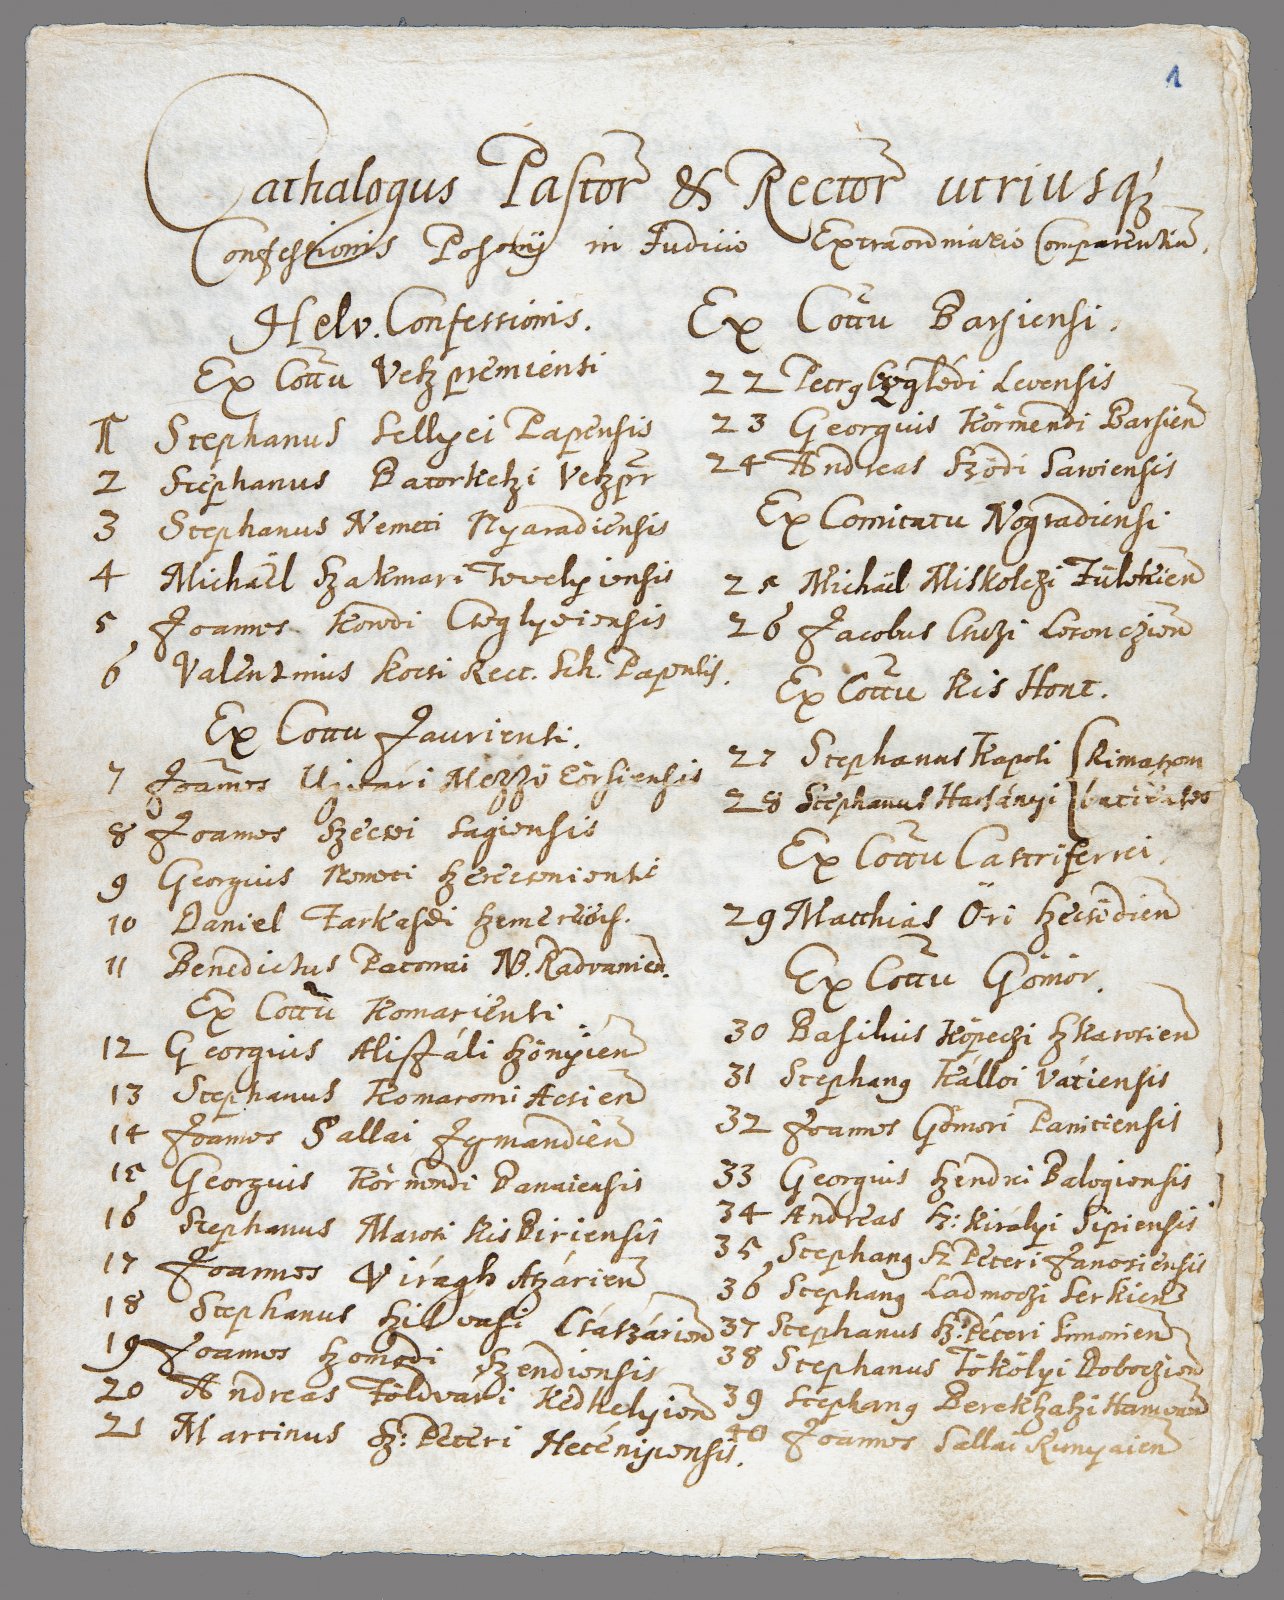 1
Cathalogus Pastor & Rector utriusq
Confessionis Posonij in Judicio Extraordinario Comparentiũ.
Helv. Confessionis.
Ex Cottu Veszpremiensi
1 Stephanus Sellyei Papensis
2 Stephanus Batorkeszi Veszpr
3 Stephanus Nemeti Nyaradiensis
4 Michaël Szakmari Tevelyiensis
5 Joannes
6 Valentinus Kocsi Rect. Sch. Papensis.
Ex Cottu Jauriensi.
7 Joannes Ujvári Mezzö Eörsiensis
8 Joannes Szecsei Sagiensis
9 Georgius Nemeti
10 Daniel Farkasdi
11 Benedictus Patonai N. Radvanien.
Ex Cottu Komariensi.
12 Georgius Alistáli Szönyien
13 Stephanus Komaromi Acsien
14 Joannes Sallai Igmandien
15 Georgius Körmendi Banaiensis
16 Stephanus Maroti Kis Biriensis
17 Joannes Virágh Aszárien
18 Stephanus Szilvasi Császárien
19 Joannes Szomodi Szendiensis
20 Andreas Földvári Kedhelyien
21 Martinus Sz: Peteri Hetenyiensis.
Ex Cottu Barsiensi.
22 Petrg Czeglédi Levensis
23 Georgius Körmendi Barsien
24 Andreas Szödi Saroiensis
Ex Comitatu Nogradiensi
25 Michäel Miskolczi Fülekien
26 Jacobus Csuzi Losonczien
Ex Cottu Kis Hont.
27 Stephanus Kapoti { Rimaszom
28 Stephanus Harsányi } batienses
Ex Cottu Castriferrei.
29 Matthias Öri
Ex Cottu Gömör.
30 Basilius Köpeczi Szkarosien
31 Stephang Kálloi Vátiensis
32 Joannes Gömöri Panitiensis
33 Georgius Szendrei Balogiensis
34 Andreas Sz: Királyi Sipiensis
35 Stephang Sz Peteri Janosiensis
36 Stephang Ladmoczi Serkiens
37 Stephanus Sz: Péteri Simonien
38 Stephanus Tökölyi Doboczien
39 Stephang Berekszaszi Hamvaien
40 Joannes Sallai Runyaien